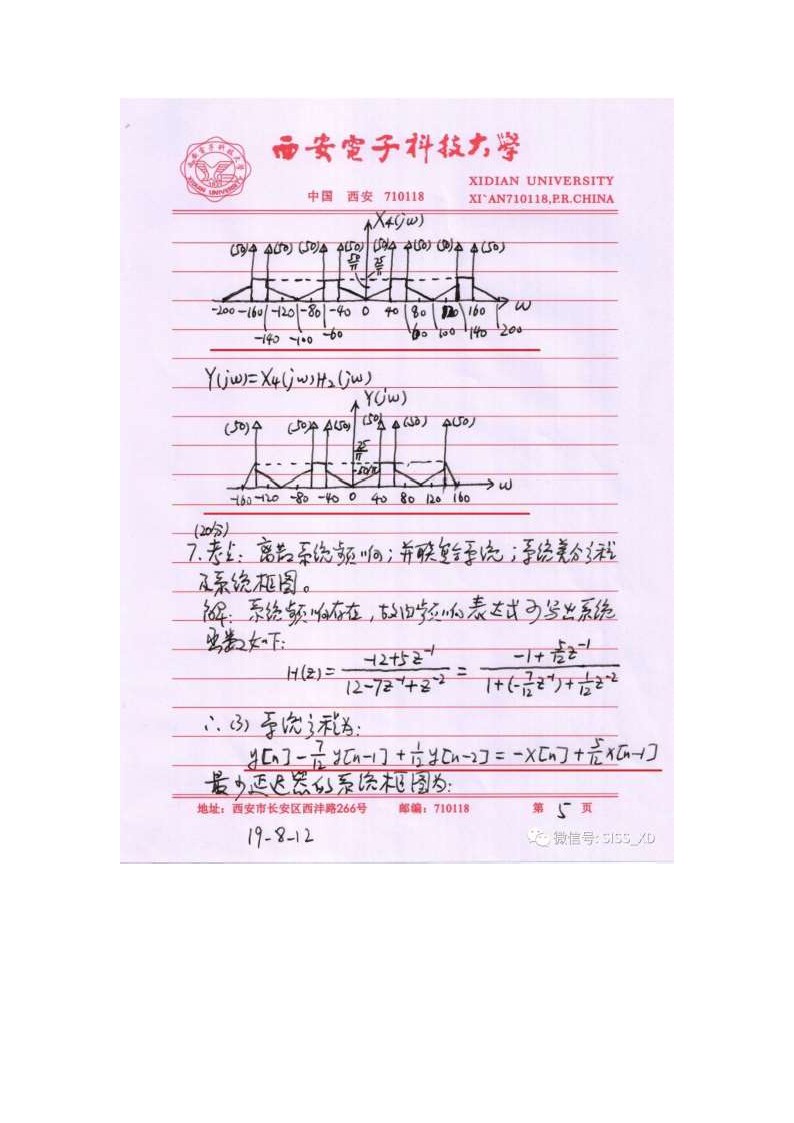 西安電子科技大學
XIDIAN UNIVERSITY
中国 西安 710118 XI`AN710118,P.R.CHINA
X₄(jω)
(50) (50) (50) (50) (50) (50) (50) (50)
50/π 25/π
-200 -160 -120 -80 -40 0 40 80 120 160 ω
-140 -100 -60 60 100 140 200
Y(jω)=X₄(jω)H₂(jω)
Y(jω)
(50) (50) (50) (50) (50) (50)
25/π
50/π
-160 -120 -80 -40 0 40 80 120 160 ω
(20分)
7.考点：离散系统频响；并联复合系统；系统差分方程
及系统框图。
解：系统频响存在，故由频响表达式可写出系统
函数如下：
H(z)= (-12+5z⁻¹)/(12-7z⁻¹+z⁻²) = (-1+5/12z⁻¹)/(1+(-7/12z⁻¹)+1/12z⁻²)
∴(3) 系统方程为：
y[n]-7/12y[n-1]+1/12y[n-2]=-x[n]+5/12x[n-1]
最少延迟器的系统框图为：
地址：西安市长安区西沣路266号 邮编：710118 第 5 页
19-8-12
微信号: SISS_XD